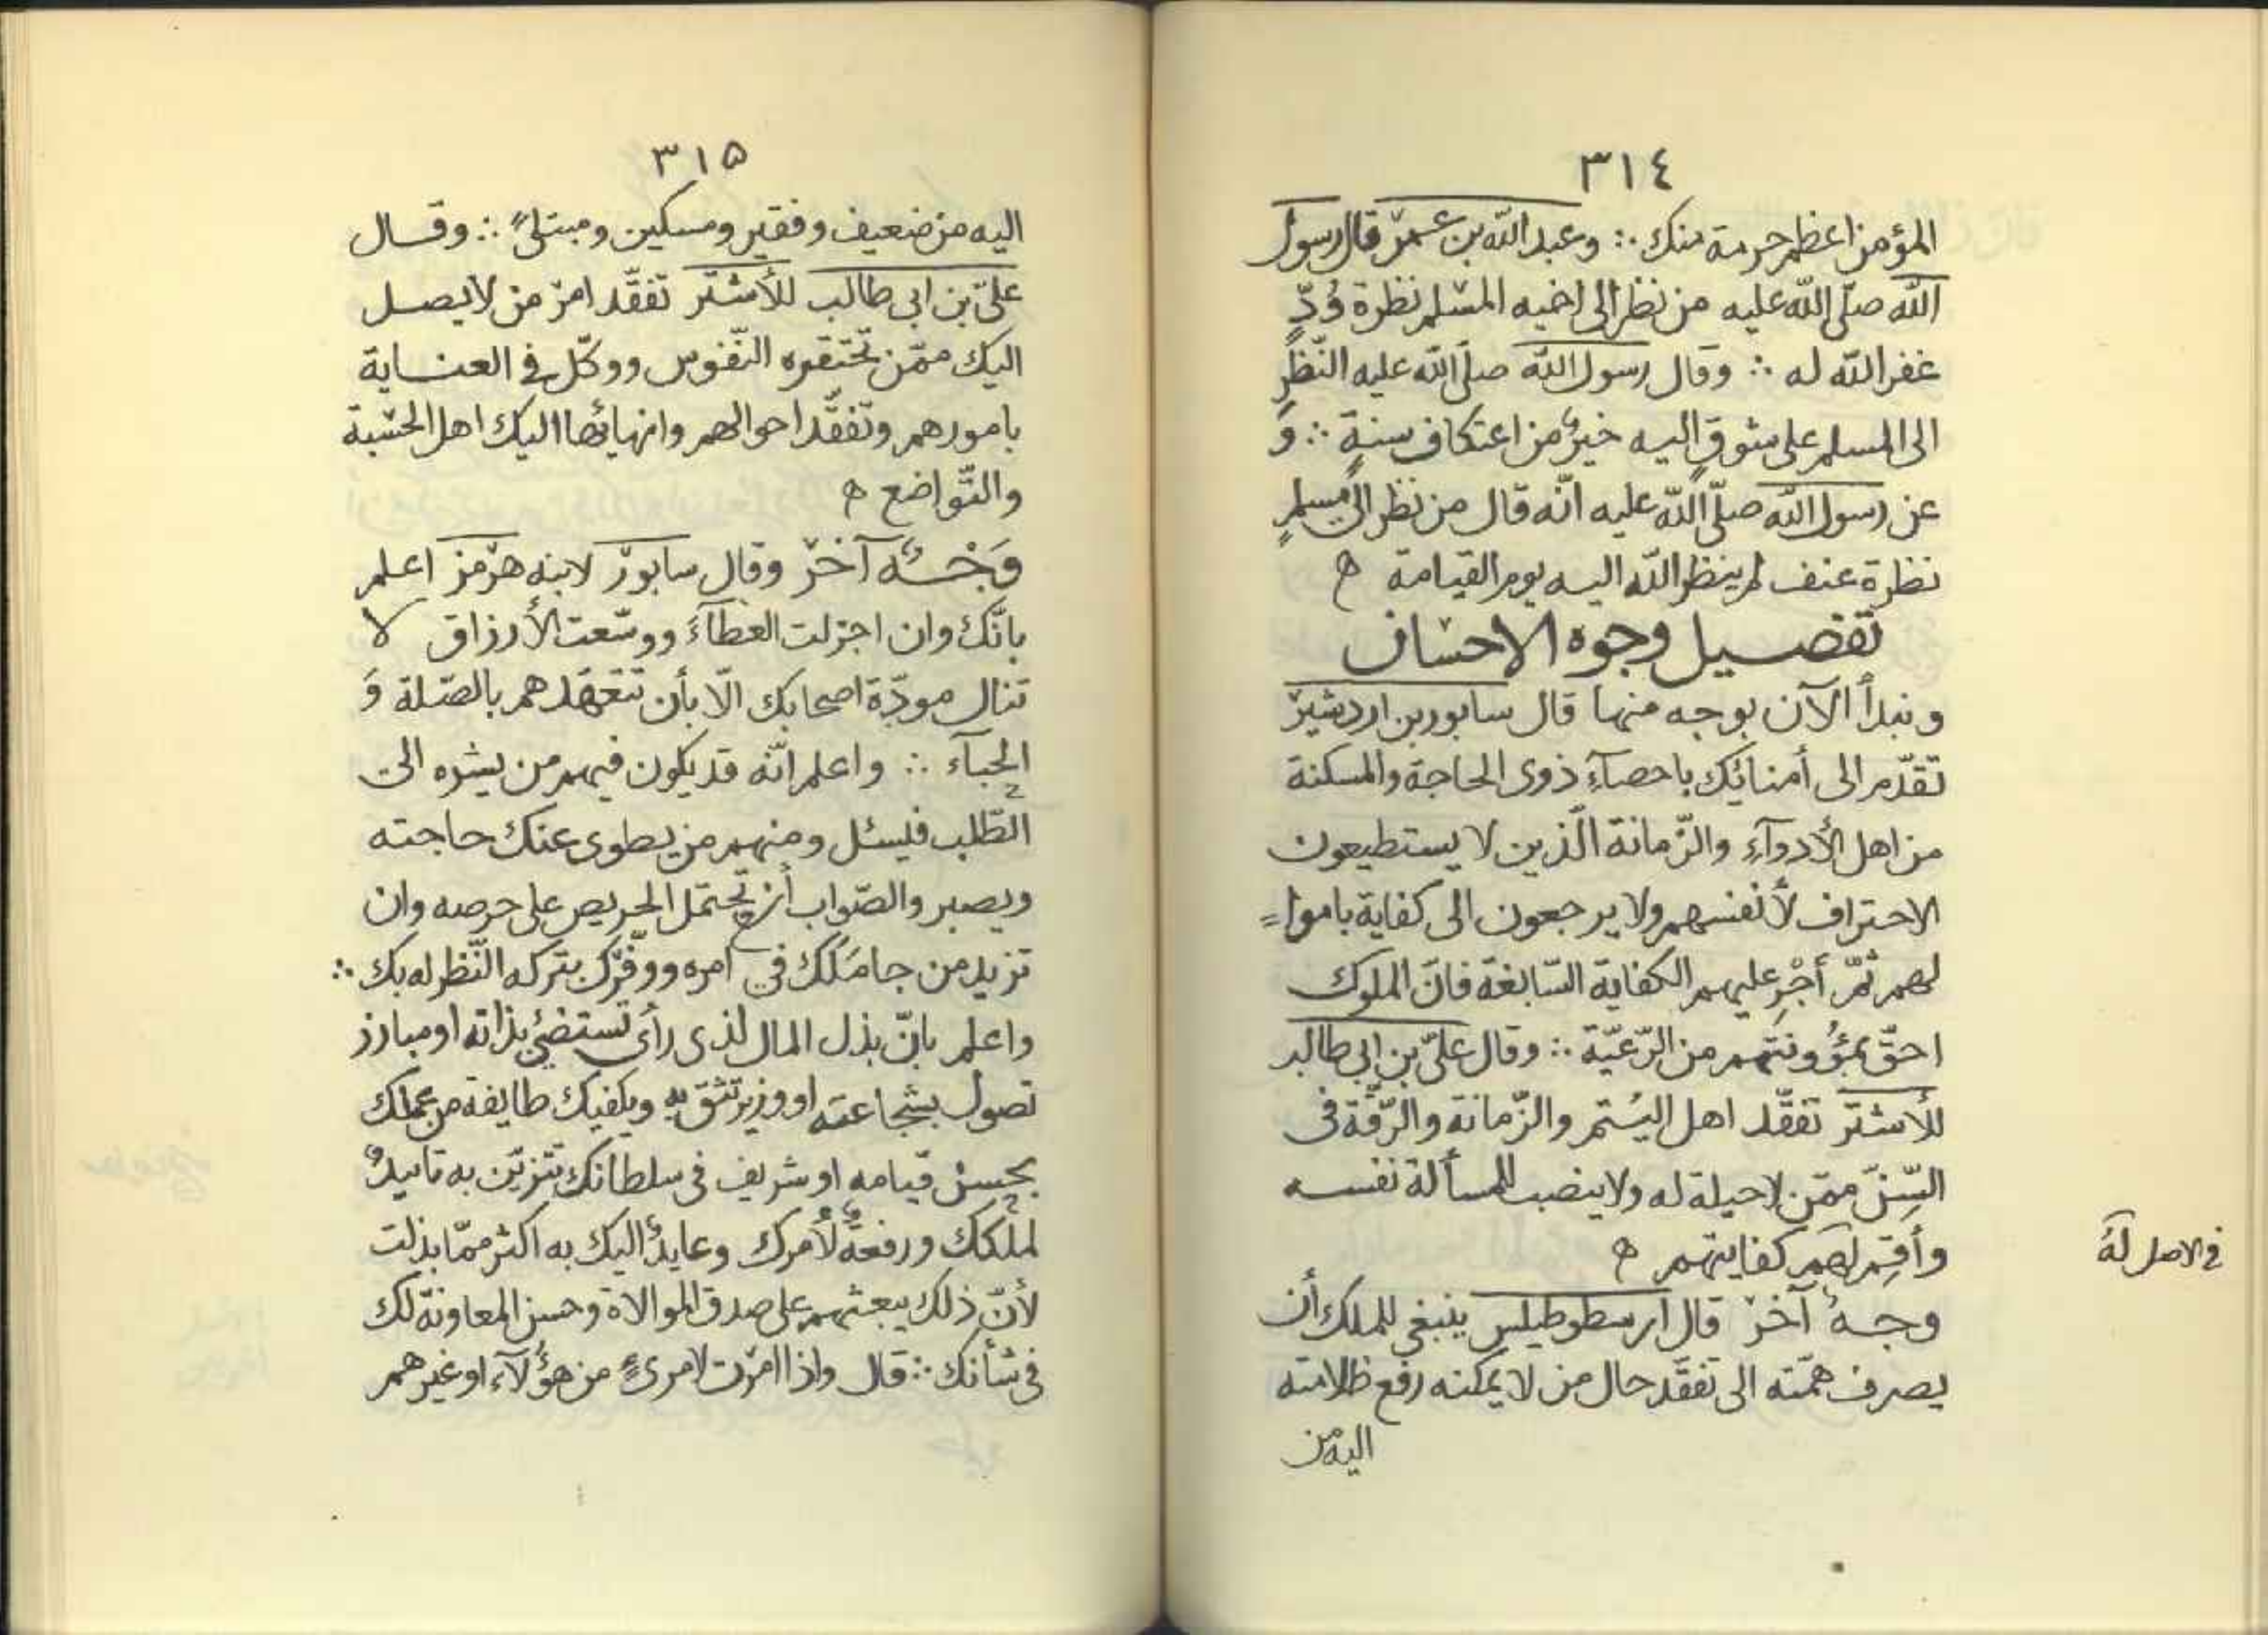 ٣١٤
المؤمن اعظم حرمة منك ∴ وعبد الله بن عمر قال رسول
الله صلّى الله عليه من نظر الى اخيه المسلم نظرة وُدٍّ
غفر الله له ∴ وقال رسول الله صلّى الله عليه النّظر
الى المسلم على شوقٍ اليه خيرٌ من اعتكاف سنةٍ ∴ وَ
عن رسول الله صلّى الله عليه انّه قال من نظر الى مسلمٍ
نظرة عنف لم ينظر الله اليه يوم القيامة ه
تفصيل وجوه الاحسان
ونبدأ الآن بوجه منها قال سابور بن اردشير
تقدّم الى أمنائك باحصآءِ ذوى الحاجة والمسكنة
من اهل الأدوآءِ والزّمانة الّذين لا يستطيعون
الاحتراف لأنفسهم ولا يرجعون الى كفاية باموا=
لهم ثمّ أجْرِ عليهم الكفاية السّابغة فانّ الملوك
احقّ بمؤُونتهم من الرّعيّة ∴ وقال علىّ بن ابى طالب
للأشتر تفقّد اهل اليُتم والزّمانة والرّقّة فى
السِّنّ ممّن لا حيلة له ولا ينصب للمسألة نفسه
وأقِم لهم كفايتهم ه
فى الاصل لهَ
وجهٌ آخر قال ارسطوطيلس ينبغى للملك أن
يصرف همّته الى تفقّد حال من لا يمكنه رفع ظلامته
اليه من
٣١٥
اليه من ضعيف وفقير ومسكين ومبتلىً ∴ وقال
علىّ بن ابى طالب للأشتر تفقّد امر من لا يصل
اليك ممّن تحتقره النّفوس ووكّل فى العناية
بامورهم وتفقّد احوالهم وانهائها اليك اهل الخشية
والتّواضع ه
وَجْهٌ آخر وقال سابور لابنه هرمز اعلم
بانّك وان اجزلت العطآءَ ووسّعت الأرزاق لا
تنال مودّة اصحابك الّا بأن تتعهّدهم بالصّلة وَ
الحبآء ∴ واعلم انّه قد يكون فيهم من يشره الى
الطّلب فليسئل ومنهم من يطوى عنك حاجته
ويصبر والصّواب أن تحتمل الحريص على حرصه وان
تزيد من جامَلك فى امره ووفّرك بتركه النّظر له بك ∴
واعلم بانّ بذل المال لذى رأى تستضئ بذاته او مبارز
تصول بشجاعته او وزير تثق به ويكفيك طايفة من عملك
بحسن قيامه او شريف فى سلطانك تتزيّن به تاييدٌ
لملكك ورفعةٌ لأمرك وعايدٌ اليك به اكثر ممّا بذلت
لأنّ ذلك يبعثهم على صدق الموالاة وحسن المعاونة لك
فى شأنك ∴ قال واذا امرت لامرئٍ من هؤُلآء او غيرهم